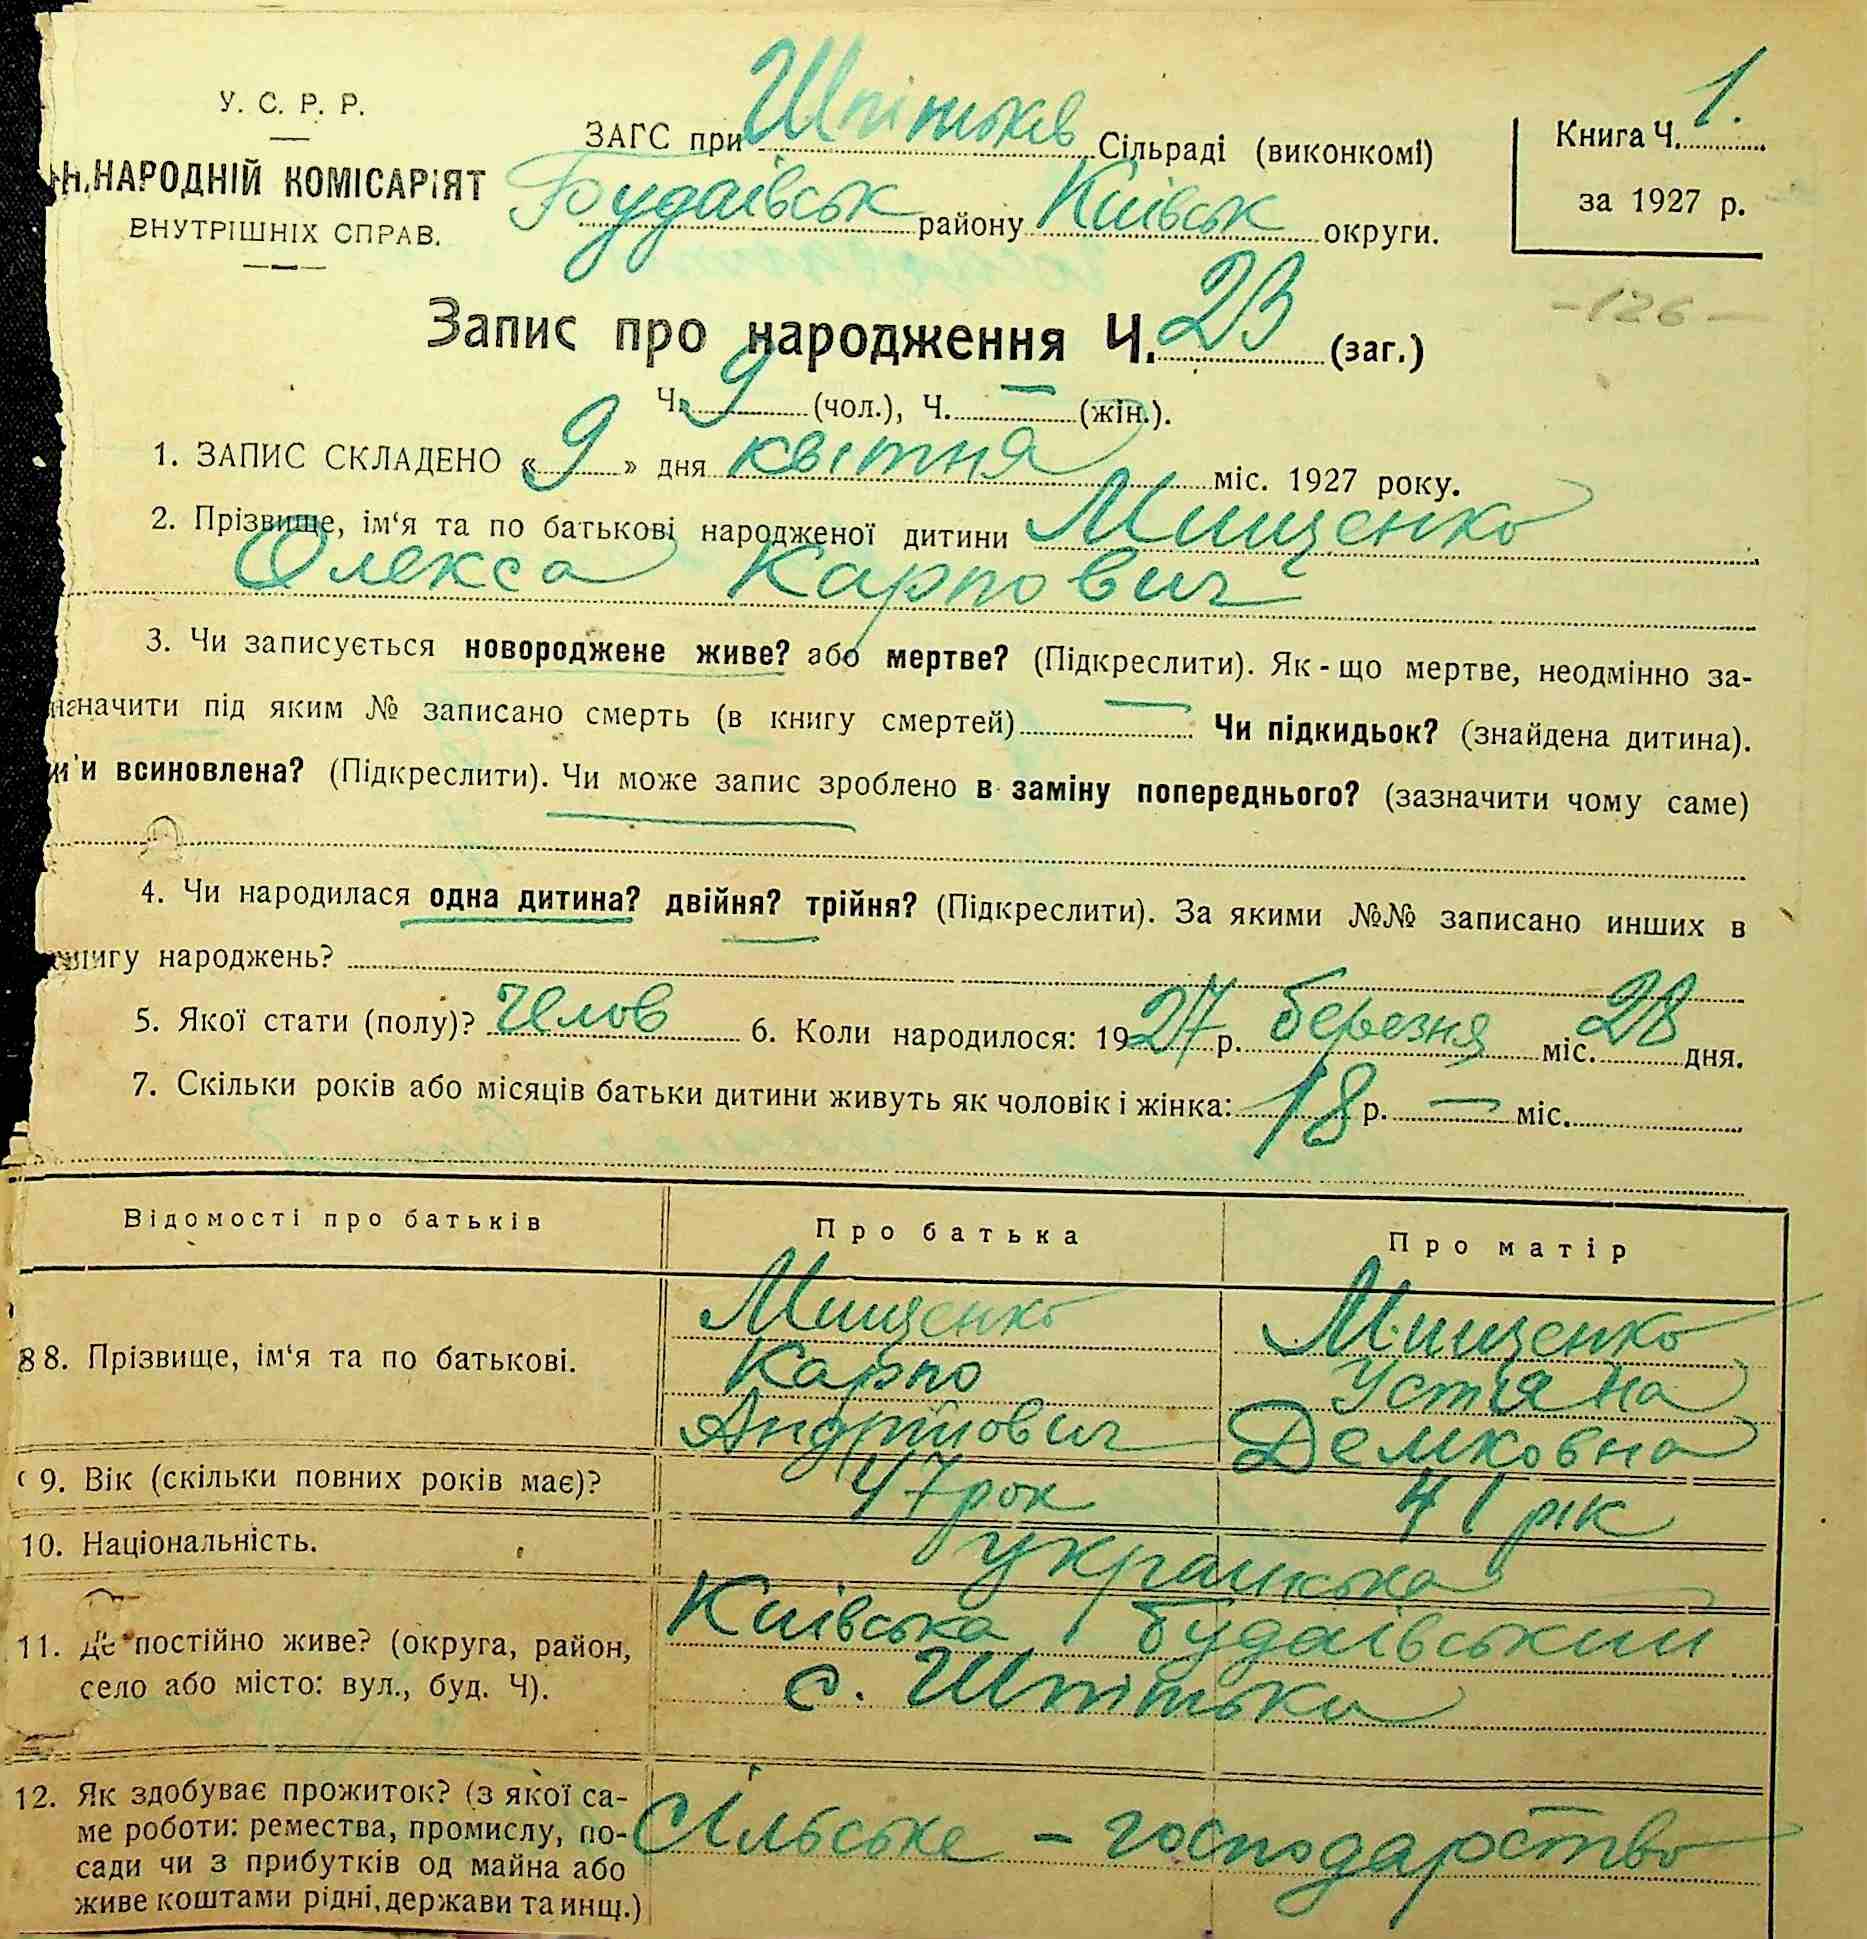 У. С. Р. Р.
НАРОДНІЙ КОМІСАРІЯТ
ВНУТРІШНІХ СПРАВ.
ЗАГС при Шпітьків Сільраді (виконкомі)
Будаівськ району Київськ округи.
Книга Ч. 1.
за 1927 р.
-126-
Запис про народження Ч. 23 (заг.)
Ч. 9 (чол.), Ч. — (жін.).
1. ЗАПИС СКЛАДЕНО « 9 » дня квітня міс. 1927 року.
2. Прізвище, ім‘я та по батькові народженої дитини Мищенко
Олекса Карпович
3. Чи записується новороджене живе? або мертве? (Підкреслити). Як-що мертве, неодмінно за-
значити під яким № записано смерть (в книгу смертей) — Чи підкидьок? (знайдена дитина).
Чи всиновлена? (Підкреслити). Чи може запис зроблено в заміну попереднього? (зазначити чому саме)
4. Чи народилася одна дитина? двійня? трійня? (Підкреслити). За якими №№ записано инших в
книгу народжень?
5. Якої стати (полу)? Челов 6. Коли народилося: 1927 р. березня міс. 28 дня.
7. Скільки років або місяців батьки дитини живуть як чоловік і жінка: 18 р. — міс.
Відомості про батьків Про батька Про матір
8. Прізвище, ім‘я та по батькові. Мищенко Карпо Андрійович Мищенко Устяна Демковна
9. Вік (скільки повних років має)? 47 рок 41 рік
10. Національність. українська
11. Де постійно живе? (округа, район, Київська Будаівський
село або місто: вул., буд. Ч). с. Шпітьки
12. Як здобуває прожиток? (з якої са-
ме роботи: ремества, промислу, по- Сільське - господарство
сади чи з прибутків од майна або
живе коштами рідні, держави та инщ.)